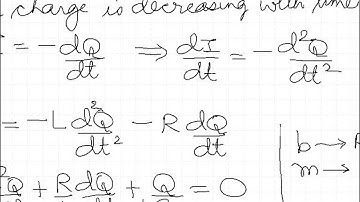 charge is decreasing with time
= -dQ/dt ⟹ dI/dt = -d²Q/dt²
= -L d²Q/dt² - R dQ/dt
b →
m →
+ R dQ/dt + Q = 0